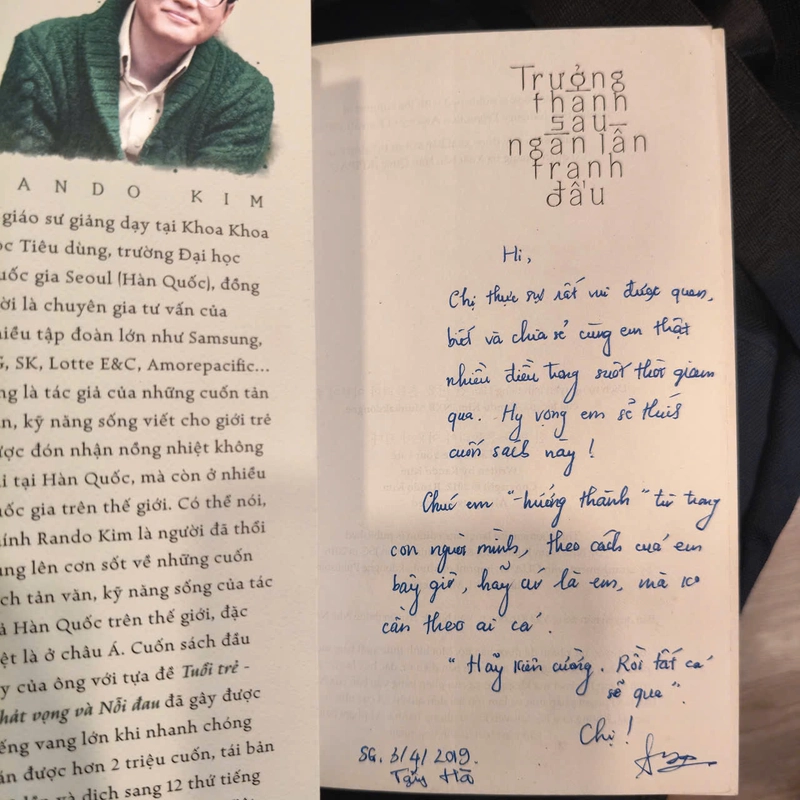 ANDO KIM
giáo sư giảng dạy tại Khoa Khoa
ọc Tiêu dùng, trường Đại học
uốc gia Seoul (Hàn Quốc), đồng
ời là chuyên gia tư vấn của
hiều tập đoàn lớn như Samsung,
G, SK, Lotte E&C, Amorepacific...
ng là tác giả của những cuốn tản
n, kỹ năng sống viết cho giới trẻ
ược đón nhận nồng nhiệt không
ỉ tại Hàn Quốc, mà còn ở nhiều
uốc gia trên thế giới. Có thể nói,
hính Rando Kim là người đã thổi
ùng lên cơn sốt về những cuốn
ch tản văn, kỹ năng sống của tác
ả Hàn Quốc trên thế giới, đặc
ệt là ở châu Á. Cuốn sách đầu
y của ông với tựa đề Tuổi trẻ -
hát vọng và Nỗi đau đã gây được
ếng vang lớn khi nhanh chóng
án được hơn 2 triệu cuốn, tái bản
lần và dịch sang 12 thứ tiếng
Trưởng
thành
sau
ngàn lần
tranh
đấu
Hi,
Chị thực sự rất vui được quen,
biết và chia sẻ cùng em thật
nhiều điều trong suốt thời gian
qua. Hy vọng em sẽ thích
cuốn sách này!
Chúc em "trưởng thành" từ trong
con người mình, theo cách của em
bây giờ, hãy cứ là em, mà ko
cần theo ai cả.
"Hãy kiên cường. Rồi tất cả
sẽ qua".
Chị!
SG, 3/4/2019.